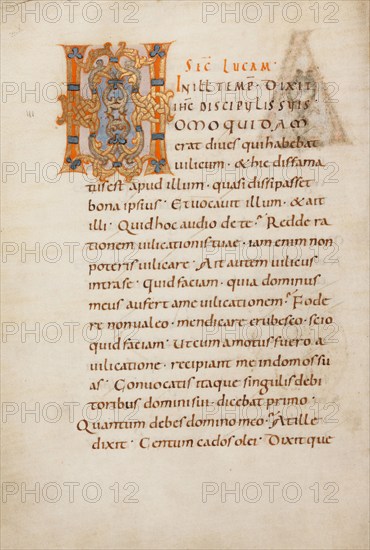 SIC LUCAM·
IN ILL TEMP· DIXIT
IHC DISCIPULIS SUIS
HOMO QUIDAM
erat dives qui habebat
vilicum · & hic diffama
tus est apud illum · quasi dissipasset
bona ipsius · Et vocavit illum · & ait
illi · Quid hoc audio de te · Redde ra
tionem vilicationis tuae · iam enim non
poteris vilicare · Ait autem vilicus
intra se · Quid faciam · quia dominus
meus aufert a me vilicationem · Fode
re non valeo · mendicare erubesco · scio
quid faciam · Ut cum amotus fuero a
vilicatione · recipiant me in domos su
as · Convocatis itaque singulis debi
toribus domini sui · dicebat primo ·
Quantum debes domino meo · At ille
dixit · Centum cados olei · Dixit que
PHOTO 12